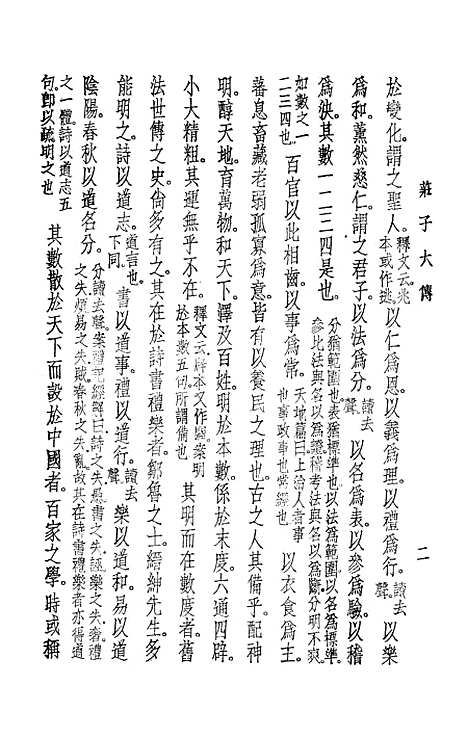 莊子大傳
二
於變化。謂之聖人。釋文云。兆本或作逃。以仁爲恩。以義爲理。以禮爲行。讀去聲。以樂
爲和。薰然慈仁。謂之君子。以法爲分。讀去聲。以名爲表。以參爲驗。以稽
爲決。其數一二三四是也。分猶範圍也。表猶標準也。以法爲範圍。以名爲標準。參比法與名以爲證。稽考法與名以爲斷。分明不爽。
如數之一二三四也。百官以此相齒。以事爲常。天地篇曰。上治人者事也。事故事也。常經也。以衣食爲主。
蕃息畜藏。老弱孤寡爲意。皆有以養民之理也。古之人其備乎。配神
明。醇天地。育萬物。和天下。澤及百姓。明於本數。係於末度。六通四辟。
小大精粗。其運無乎不在。釋文云。辟本又作闢。案明於本數五句。所謂備也。其明而在數度者。舊
法世傳之史。尙多有之。其在於詩書禮樂者。鄒魯之士。縉紳先生。多
能明之。詩以道志。道言也。下同。書以道事。禮以道行。讀去聲。樂以道和。易以道
陰陽。春秋以道名分。分讀去聲。案禮記經解曰。詩之失愚。書之失誣。樂之失奢。禮之失煩。易之失賊。春秋之失亂。故其在詩書禮樂者。亦得道
之一體。詩以道志五句。卽以疏明之也。其數散於天下。而設於中國者。百家之學。時或稱